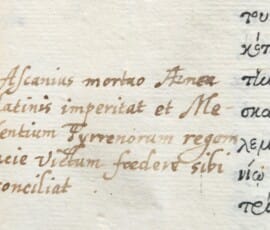 Ascanius mortuo Ænea
Latinis imperitat et Me-
sentium Tyrrenorum regem
acie victum fœdere sibi
conciliat
του
κέπ
τίω
σκα
λεμ
νίῳ
τρέ